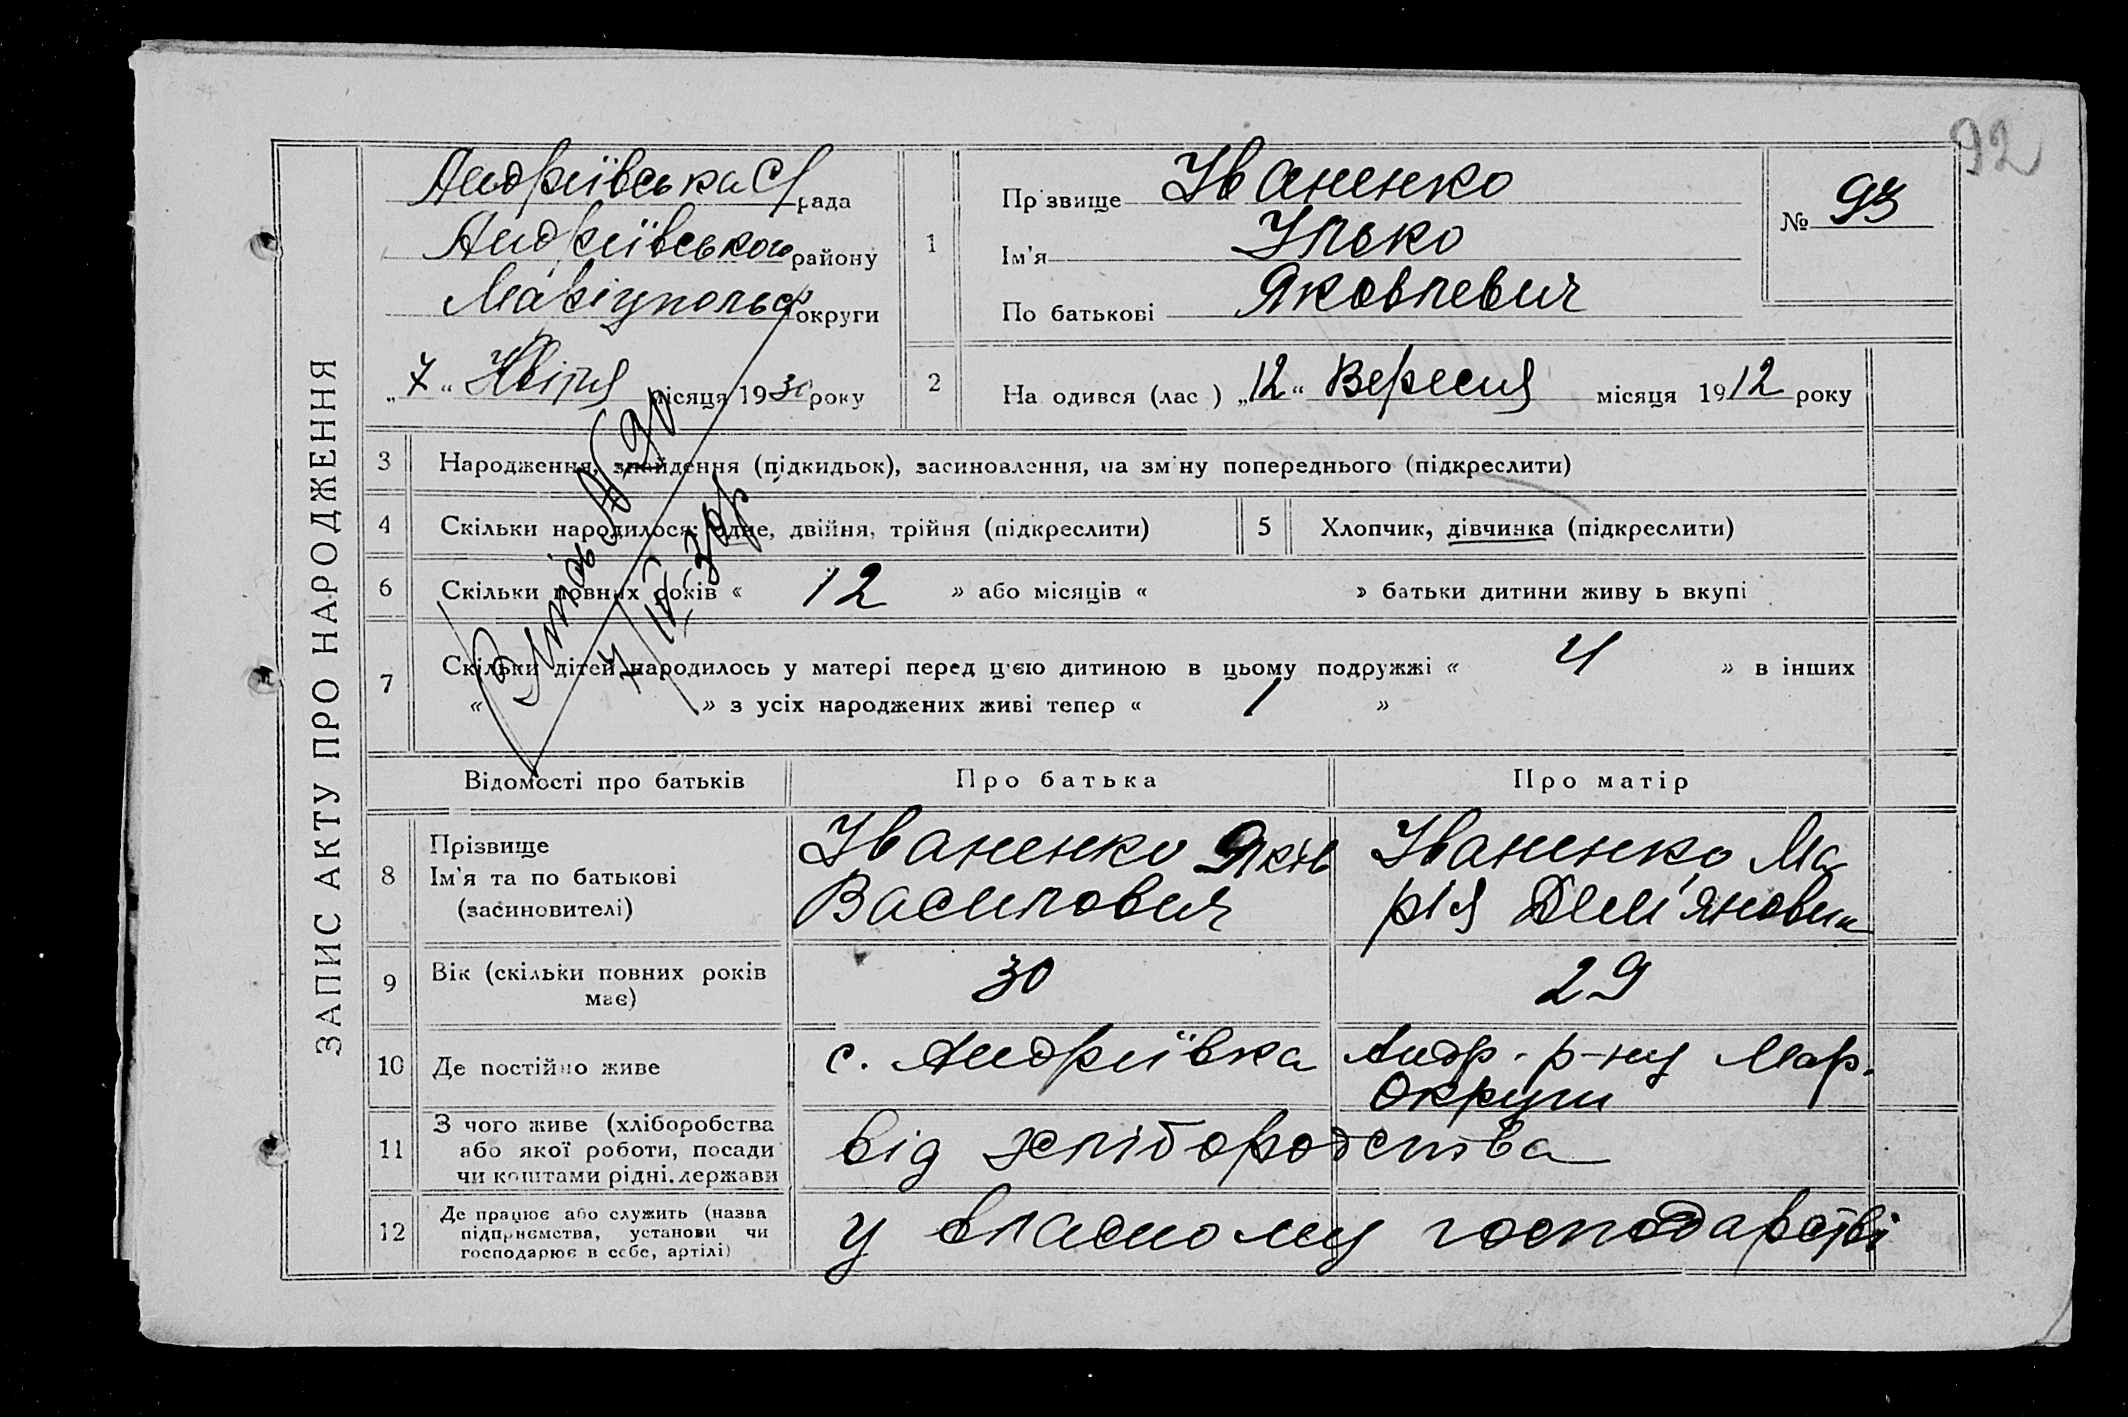 92
ЗАПИС АКТУ ПРО НАРОДЖЕННЯ
Андріївська С/рада
Андріївського району
Маріупольс округи
„7“ Квітня місяця 1930 року
1
Пр звище Іваненко
Ім'я Ілько
По батькові Яковлевич
№ 93
2
На одився (лас ) „12“ Вересня місяця 1912 року
3 Народження, знайдення (підкидьок), засиновлення, на зм ну попереднього (підкреслити)
4 Скільки народилося: одне, двійня, трійня (підкреслити)
5 Хлопчик, дівчинка (підкреслити)
6 Скільки повних років « 12 » або місяців « » батьки дитини живу ь вкупі
7 Скільки дітей народилось у матері перед цією дитиною в цьому подружжі « 4 » в інших
« » з усіх народжених живі тепер « 1 »
Витяг №
7/IV 30р
Відомості про батьків
Про батька
Про матір
8 Прізвище
Ім'я та по батькові
(засиновителі)
Іваненко Яків
Василович
Іваненко Ма
рія Дем'яновн
9 Вік (скільки повних років
має)
30
29
10 Де постійно живе
с. Андріївка Андр. р-ну Мар.
Округи
11 З чого живе (хліборобства
або якої роботи, посади
чи коштами рідні, держави
від хліборобства
12 Де працює або служить (назва
підприємства, установи чи
господарює в себе, артілі)
у власному господарстві